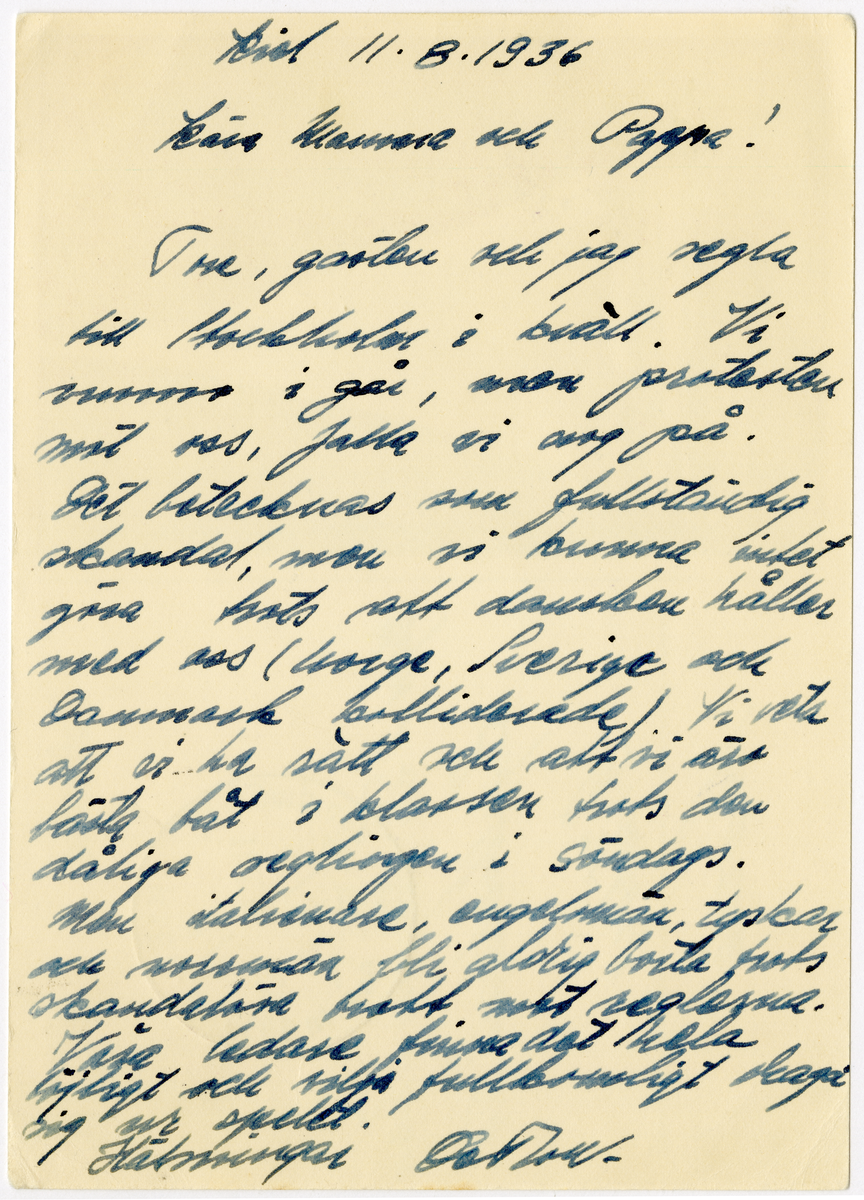 Kiel 11.8.1936
Kära Mamma och Pappa!
Tore, gasten och jag segla
till Stockholm i kväll. Vi
vunno i går, men protesten
mot oss, falla vi nog på.
Det betecknas som fullständig
skandal, men vi kunna intet
göra trots att dansken håller
med oss (Norge, Sverige och
Danmark kolliderade) Vi veta
att vi ha rätt och att vi äro
bästa båt i klassen trots den
dåliga seglingen i Söndags.
Men italienare, engelsmän, tyskar
och norrmän bli aldrig borta trots
skandalösa brott mot reglerna.
Våra ledare finna det hela
löjligt och vilja fullkomligt draga
sig ur spelet.
Hälsningar